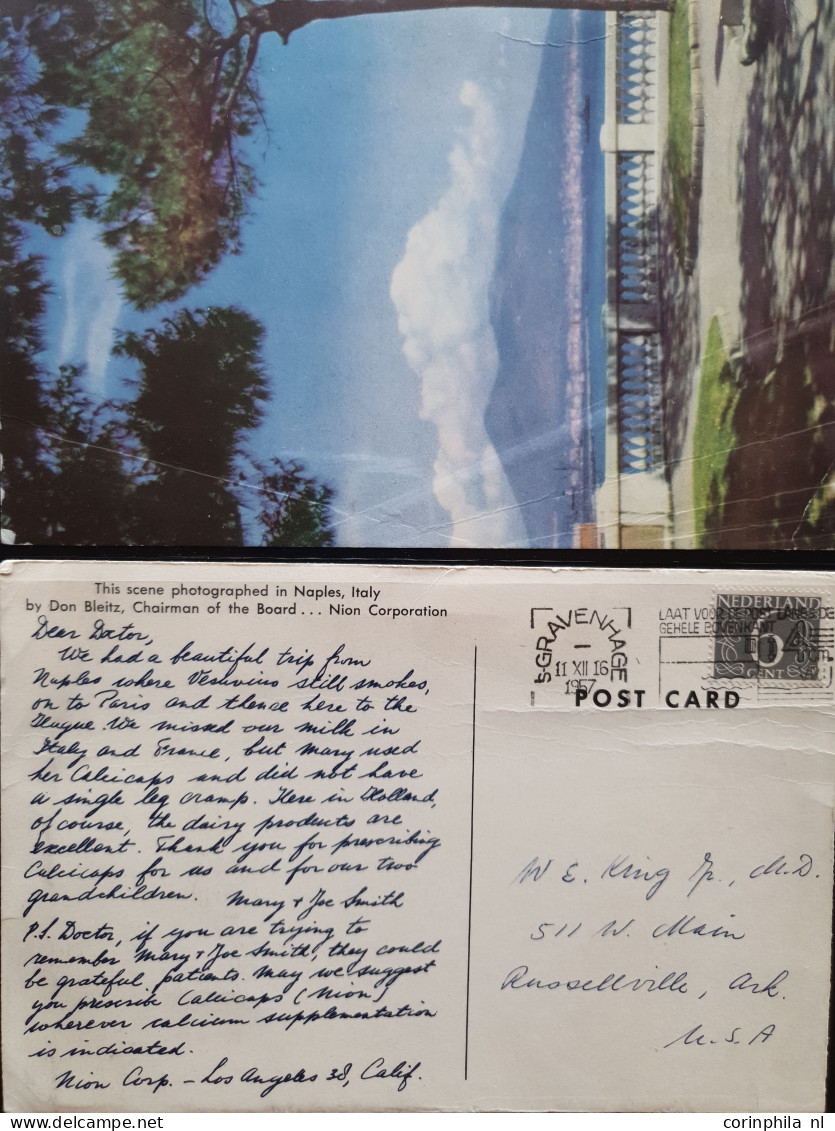 This scene photographed in Naples, Italy
by Don Bleitz, Chairman of the Board . . . Nion Corporation
Dear Doctor,
We had a beautiful trip from
Naples where Vesuvius still smokes,
on to Paris and thence here to the
Hague. We missed our milk in
Italy and France, but Mary used
her Calcicaps and did not have
a single leg cramp. Here in Holland,
of course, the dairy products are
excellent. Thank you for prescribing
Calcicaps for us and for our two
grandchildren. Mary + Joe Smith
P.S. Doctor, if you are trying to
remember Mary + Joe Smith, they could
be grateful patients. May we suggest
you prescribe Calcicaps (Nion)
wherever calcium supplementation
is indicated.
Nion Corp. – Los Angeles 38, Calif.
's-GRAVENHAGE
11 XII 16
1957
LAAT VOOR DE POST
GEHELE BOVENKANT
NEDERLAND
CENT
POST CARD
W E. King Jr., M.D.
511 W. Main
Russellville, Ark.
U.S.A
corinphila nl